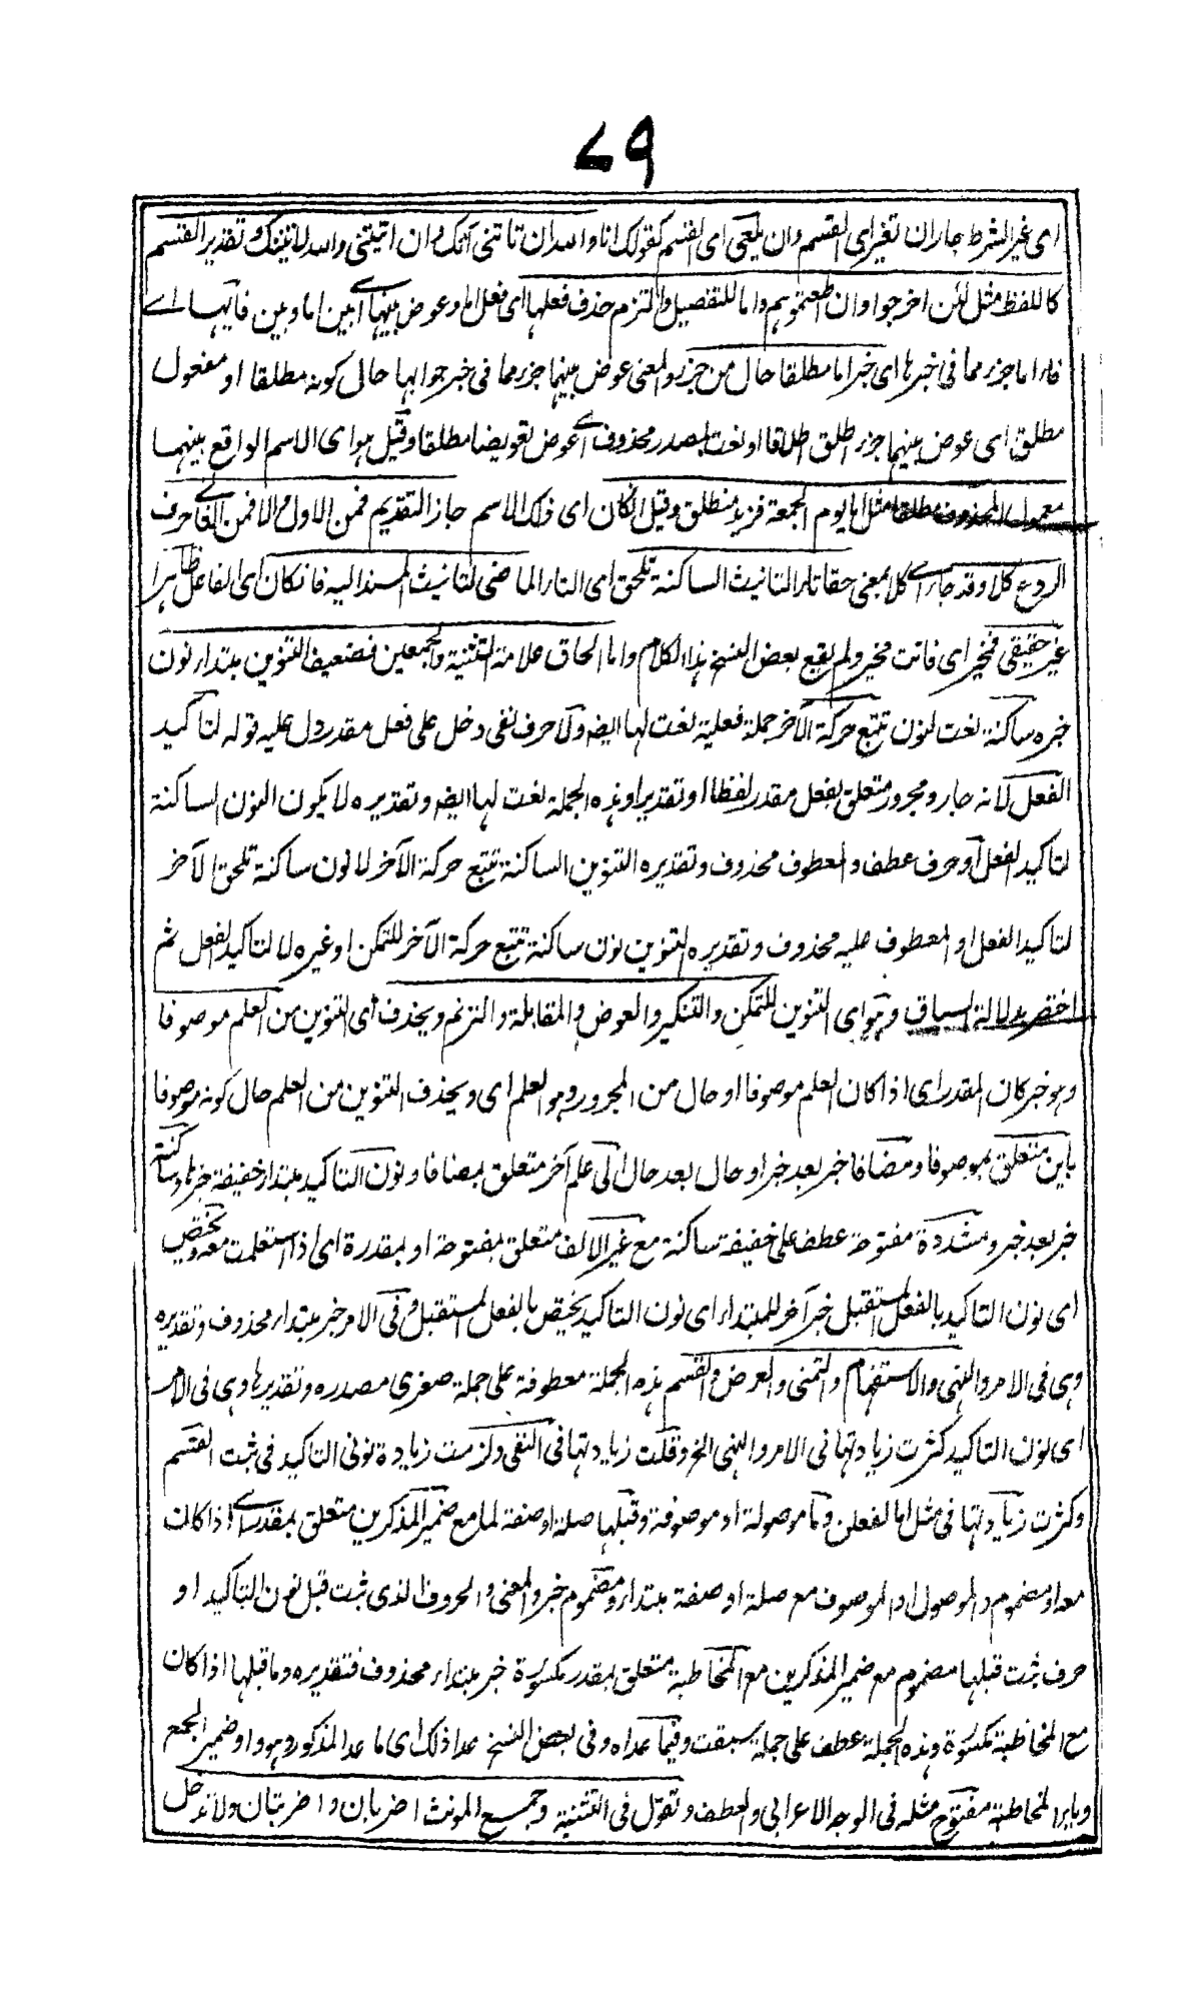 ٧٩
اى غير الشرط جاز ان تغير اى القسم وان يلغى اى القسم كقولك انا والله ان تاتنى آتك وان اتيتنى والله لاتينك وتقدير القسم
كاللفظ مثل لئن اخرجوا وان اطعتموهم واما للتفصيل والتزم حذف فعلها اى فعل اما وعوض بينها اى بين اما وبين فائها اے
فاء اما جزء مما فى خبرها اى خبر اما مطلقا حال من جزء والمعنى عوض بينهما جزء مما فى خبر جوابها حال كونه مطلقا او مفعول
مطلق اى عوض بينهما جزء اطلق اطلاقا او نعت لمصدر محذوف اے عوض تعويضا مطلقا وقيل هو اى الاسم الواقع بينهما
معمول المحذوف مطلقا مثل اما يوم الجمعة فزيد منطلق وقيل ان كان اى ذلك الاسم جائز التقديم فمن الاول والا فمن الثانے حرف
الردع كلا وقد جاء اے كلا بمعنى حقا تاء التانيث الساكنة تلحق اى التاء الماضى لتانيث المسند اليه فان كان اى الفاعل ظاهرا
غير حقيقى فمخير اى فانت مخير ولم يقع بعض النسخ هذا الكلام واما الحاق علامة التثنية والجمعين فضعيف التنوين مبتداء نون
خبره ساكنة نعت لنون تتبع حركة الآخر جملة فعلية نعت لها ايضا ولا حرف نفى دخل على فعل مقدر دل عليه قوله لتاكيد
الفعل لانه جار ومجرور متعلق بفعل مقدر لفظا او تقديرا وهذه الجملة نعت لها ايضا وتقديره لا يكون النون الساكنة
لتاكيد الفعل او حرف عطف والمعطوف محذوف وتقديره التنوين الساكنة تتبع حركة الآخر لا نون ساكنة تلحق الآخر
لتاكيد الفعل او المعطوف عليه محذوف وتقديره التنوين نون ساكنة تتبع حركة الآخر للتمكن او غيره لا لتاكيد الفعل ثم
اختصر بدلالة السياق وهو اى التنوين للتمكن والتنكير والعوض والمقابلة والترنم ويحذف اى التنوين من العلم موصوفا
وهو خبر كان المقدر اى اذا كان العلم موصوفا او حال من المجرور وهو العلم اى ويحذف التنوين من العلم حال كونه موصوفا
بابن متعلق بموصوفا ومضافا خبر بعد خبر او حال بعد حال الى علم آخر متعلق بمضافا ونون التاكيد مبتداء خفيفة خبرها وساكنة
خبر بعد خبر ومشددة مفتوحة عطف على خفيفة ساكنة مع غير الالف متعلق بمفتوحة او بمقدرة اى اذا استعملت معه ويختص
اى نون التاكيد بالفعل المستقبل خبر آخر للمبتداء اى نون التاكيد يختص بالفعل المستقبل وفى الامر خبر مبتداء محذوف وتقديره
وهى فى الامر والنهى والاستفهام والتمنى والعرض والقسم هذه الجملة معطوفة على جملة صغرى مصدره وتقديرها وهى فى الامر
اى نون التاكيد كثرت زيادتها فى الامر والنهى الخ وقلت زيادتها فى النفى ولزمت زيادة نونى التاكيد فى مثبت القسم
وكثرت زيادتها فى مثل اما تفعلن وما موصولة او موصوفة وقبلها صلة او صفة لما مع ضمير المذكرين متعلق بمقدر اے اذا كان
معه او مضموم والموصول او الموصوف مع صلة او صفة مبتداء ومضموم خبر والمعنى والحروف الذى ثبت قبل نون التاكيد او
حرف ثبت قبلها مضموم مع ضمير المذكرين مع المخاطبة متعلق بمقدر مكسورة خبر مبتداء محذوف فتقديره وما قبلها اذا كان
مع المخاطبة مكسورة وهذه الجملة عطف على جملة سبقت وفيما عداه وفى بعض النسخ عدا ذلك اى ما عدا المذكور وهو واو ضمير الجمع
وياء المخاطبة مفتوح مثله فى الوجه الاعرابى والعطف وتقول فى التثنية وجمع المونث اضربان واضربنان ولا تدخل